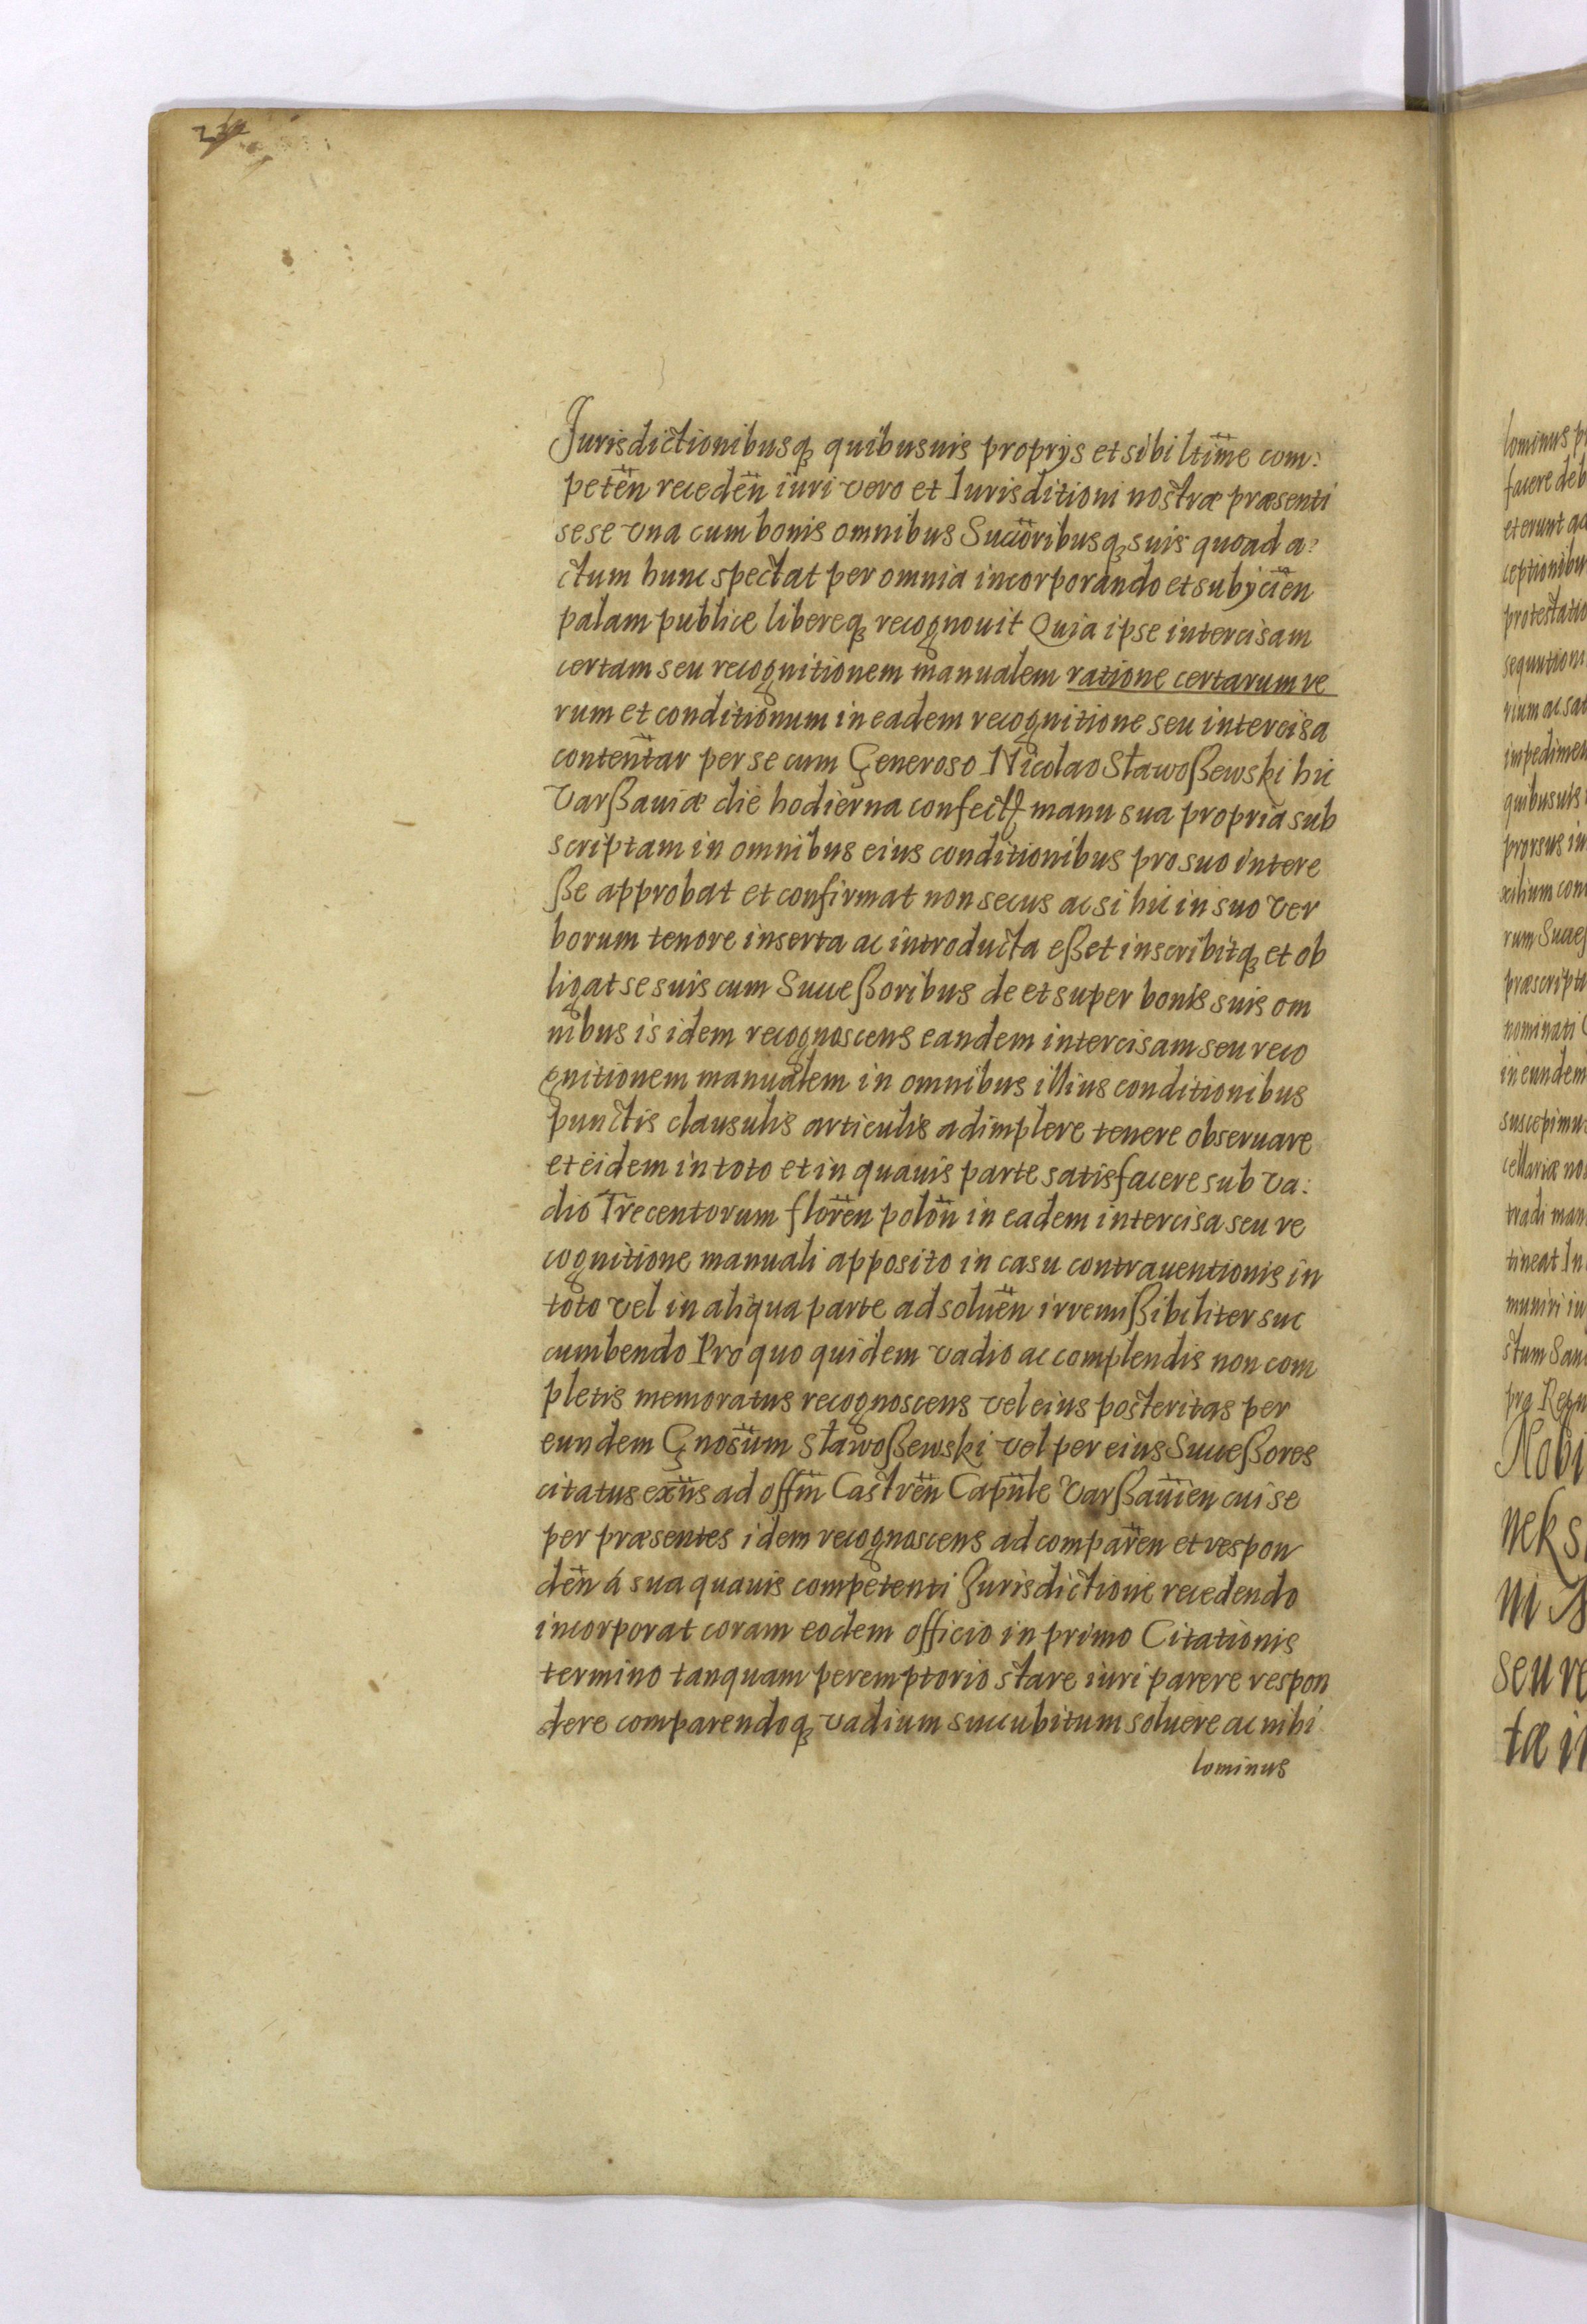 Jurisdictionibusq quibusuis proprys et sibi ltime com:
peten receden iuri vero et Iurisditioni nostræ præsenti
sese vna cum bonis omnibus Succoribusq suis quoad a:
ctum hunc spectat per omnia incorporando et subycien
palam publice libereq recognouit Quia ipse intercisam
certam seu recognitionem manualem ratione certarum re
rum et conditionum in eadem recognitione seu intercisa
contentar per se cum Generoso Nicolao Sławoßewski hic
Varßauiæ die hodierna confect manu sua propria sub
scriptam in omnibus eius conditionibus pro suo intere
ße approbat et confirmat non secus ac si hic in suo ver
borum tenore inserta ac introducta eßet inscribitq et ob
ligat se suis cum Succeßoribus de et super bonis suis om
nibus is idem recognoscens eandem intercisam seu reco
gnitionem manualem in omnibus illius conditionibus
punctis clausulis articulis adimplere tenere obseruare
et eidem in toto et in quauis parte satisfacere sub va:
dio Trecentorum floren polon in eadem intercisa seu re
cognitione manuali apposito in casu contrauentionis in
toto vel in aliqua parte ad soluen irremißibiliter suc
cumbendo Pro quo quidem vadio ac complendis non com
pletis memoratus recognoscens vel eius posteritas per
eundem Gnosum Sławoßewski vel per eius Succeßores
citatus exns ad offm Castren Capnle Varßauien cui se
per præsentes idem recognoscens ad comparen et respon
den á sua quauis competenti Jurisdictione recedendo
incorporat coram eodem officio in primo Citationis
termino tanquam peremptorio stare iuri parere respon
dere comparendoq vadium succubitum soluere ac nihi
lominus
lominus
facere deb
et erunt
ceptionibu
protestatio
rium ac
impedimen
quibusuis
prorsus in
rum Suae
præscripto
nominati
in eundem
suscepimus
cellariæ no
tradi man
tineat In
muniri iu
stum
pra Regn
Nobi
neks
ni
seu re
tæ in